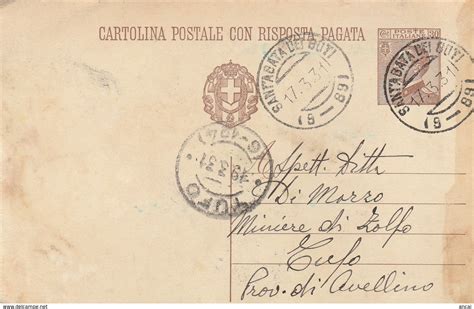 CARTOLINA POSTALE CON RISPOSTA PAGATA
POSTE
ITALIANE
30
SANT'AGATA DEI GOTI
17.3.31
(6-89)
SANT'AGATA DEI GOTI
17.3.31
(6-89)
TUFO
Spett. Ditta
Di Marzo
Miniere di Zolfo
Tufo
Prov. di Avellino